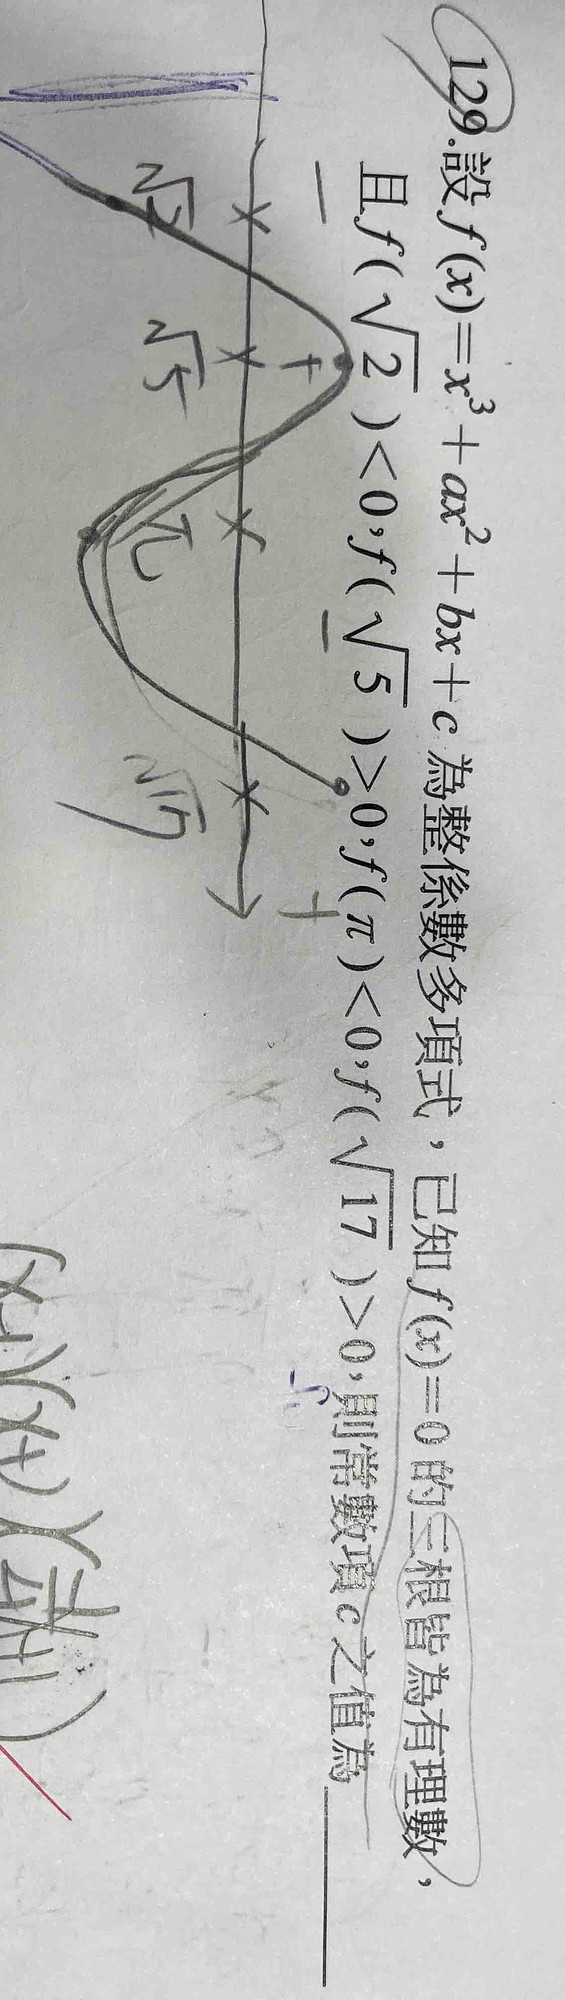 129.設 f(x)=x³+ax²+bx+c 為整係數多項式，已知 f(x)=0 的三根皆為有理數，
且 f(√2)<0，f(√5)>0，f(π)<0，f(√17)>0，則常數項 c 之值為
− − + +
√2 √5 π √17